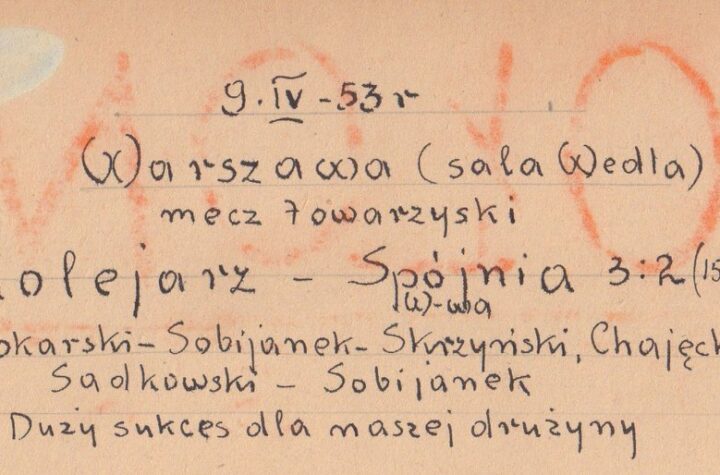 9.IV-53 r
Warszawa (sala Wedla)
mecz towarzyski
olejarz - Spójnia 3:2 (15
W-wa
okarski-Sobijanek-Skrzyński, Chajęc
Sadkowski - Sobijanek
Duży sukces dla naszej drużyny